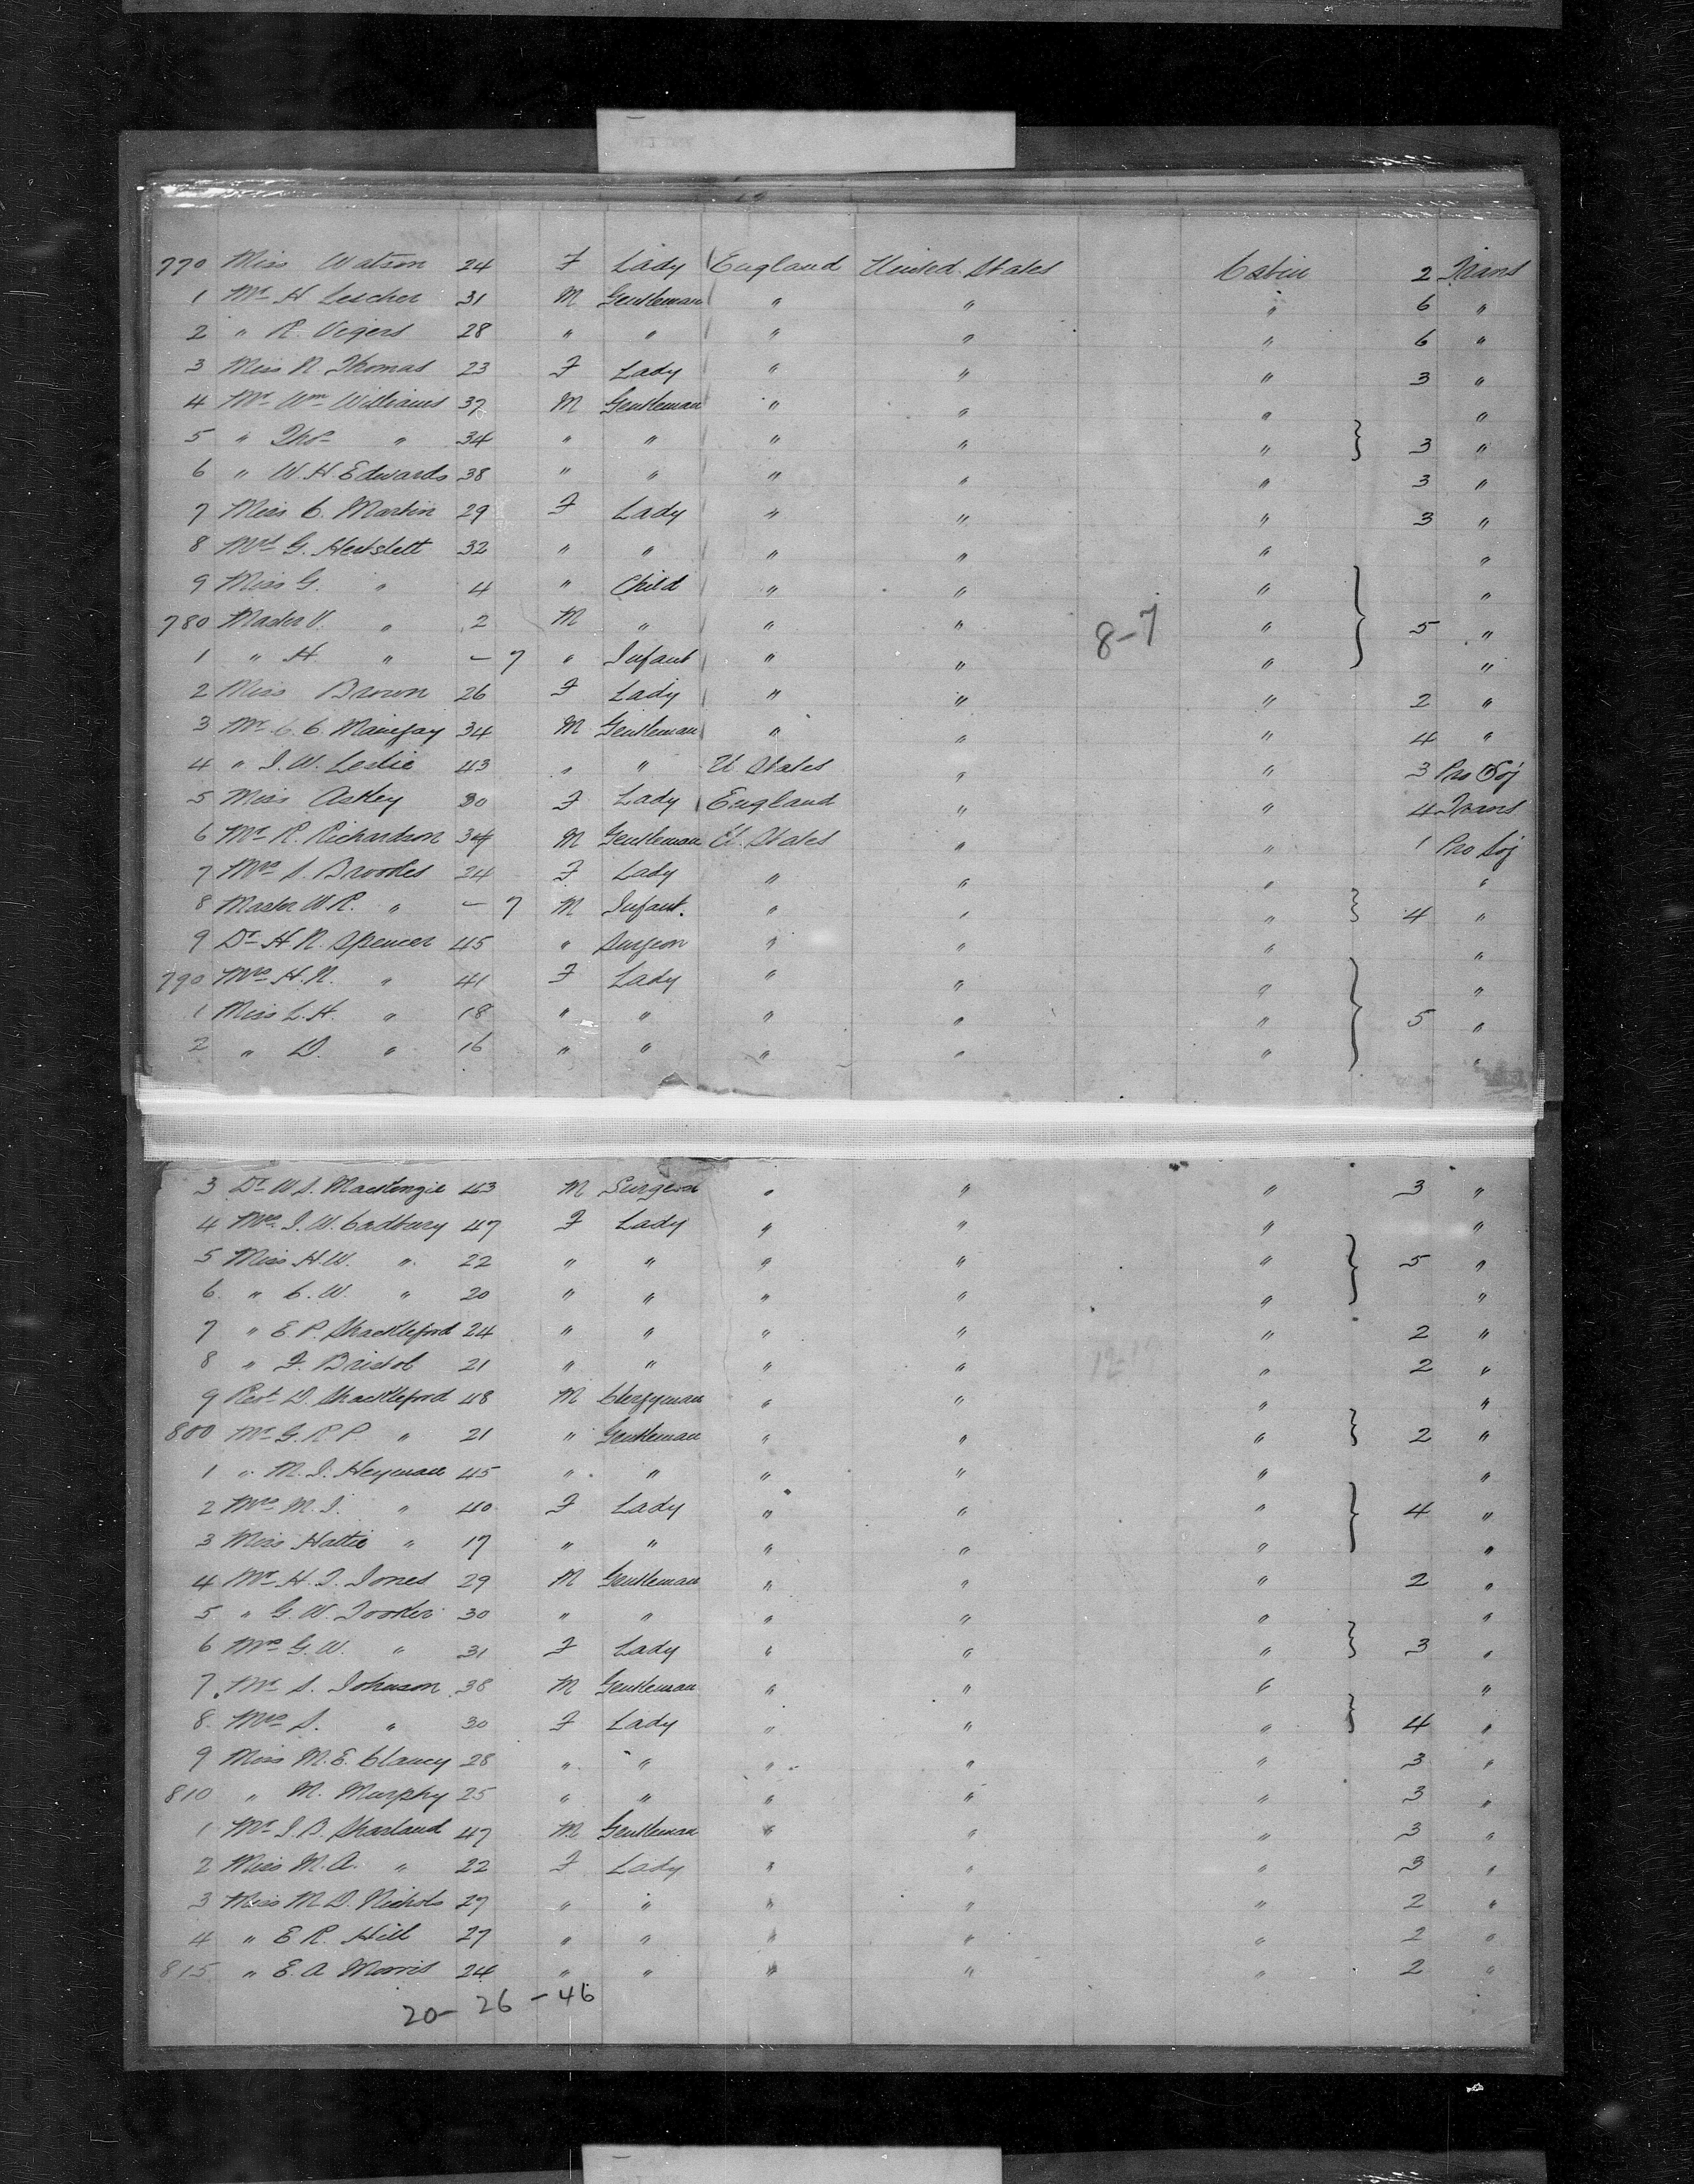 770 Miss Watson 24 F Lady England United States Cabin 2 Trans
1 Mr H Lescher 31 M Gentleman " " " 6 "
2 " R. Vigers 28 " " " " " 6 "
3 Miss N. Thomas 23 F Lady " " " 3 "
4 Mr Wm Williams 37 M Gentleman " " " "
5 " Thos " 34 " " " " " } 3 "
6 " W. H Edwards 38 " " " " " 3 "
7 Miss C. Martin 29 F Lady " " " 3 "
8 Mrs G. 32 " " " " " "
9 Miss G. " 4 " Child " " " "
780 Master V. " 2 M " " " 8-7 " } 5 "
1 " H " - 7 " Infant " " " "
2 Miss Brown 26 F Lady " " " 2 "
3 Mr C. C. 34 M Gentleman " " " 4 "
4 " J. W. Leslie 43 " " U States " " 3 Pro Soj
5 Miss Astley 30 F Lady England " " 4 Trans
6 Mr R. Richardson 34 M Gentleman U. States " " 1 Pro Soj
7 Mrs S. Brookes 24 F Lady " " " "
8 Master W. R. " - 7 M Infant. " " " } 4 "
9 Dr H. N. Spencer 45 " Surgeon " " " "
790 Mrs H. N. " 41 F Lady " " " "
1 Miss L. H. " 18 " " " " " } 5 "
2 " D. " 16 " " " " " "
3 Dr W. S. MacKenzie 43 M Surgeon " " " 3 "
4 Mrs J. W. Cadbury 47 F Lady " " " "
5 Miss H. W. " 22 " " " " " } 5 "
6 " C. W. " 20 " " " " " "
7 " E. P. Shackleford 24 " " " " " 2 "
8 " F. Bristol 21 " " " " " 2 "
9 Revt D. Shackleford 48 M Clergyman " " " "
800 Mr G. R. P. " 21 " Gentleman " " " } 2 "
1 " M. J. Heyman 45 " " " " " "
2 Mrs M. J. " 40 F Lady " " " } 4 "
3 Miss Hattie " 17 " " " " " "
4 Mr H. T. Jones 29 M Gentleman " " " 2 "
5 " G. W. Tooker 30 " " " " " "
6 Mrs G. W. " 31 F Lady " " " } 3 "
7 Mr S. Johnson 38 M Gentleman " " " "
8 Mrs S. " 30 F Lady " " " } 4 "
9 Miss M. E. Clancy 28 " " " " " 3 "
810 " M. Murphy 25 " " " " " 3 "
1 Mr J. B. Sharland 47 M Gentleman " " " 3 "
2 Miss M. A. " 22 F Lady " " " 3 "
3 Miss M. D. Nichols 27 " " " " " 2 "
4 " E. R. Hill 27 " " " " " 2 "
815 " E. A Morris 24 " " " " " 2 "
20- 26 - 46